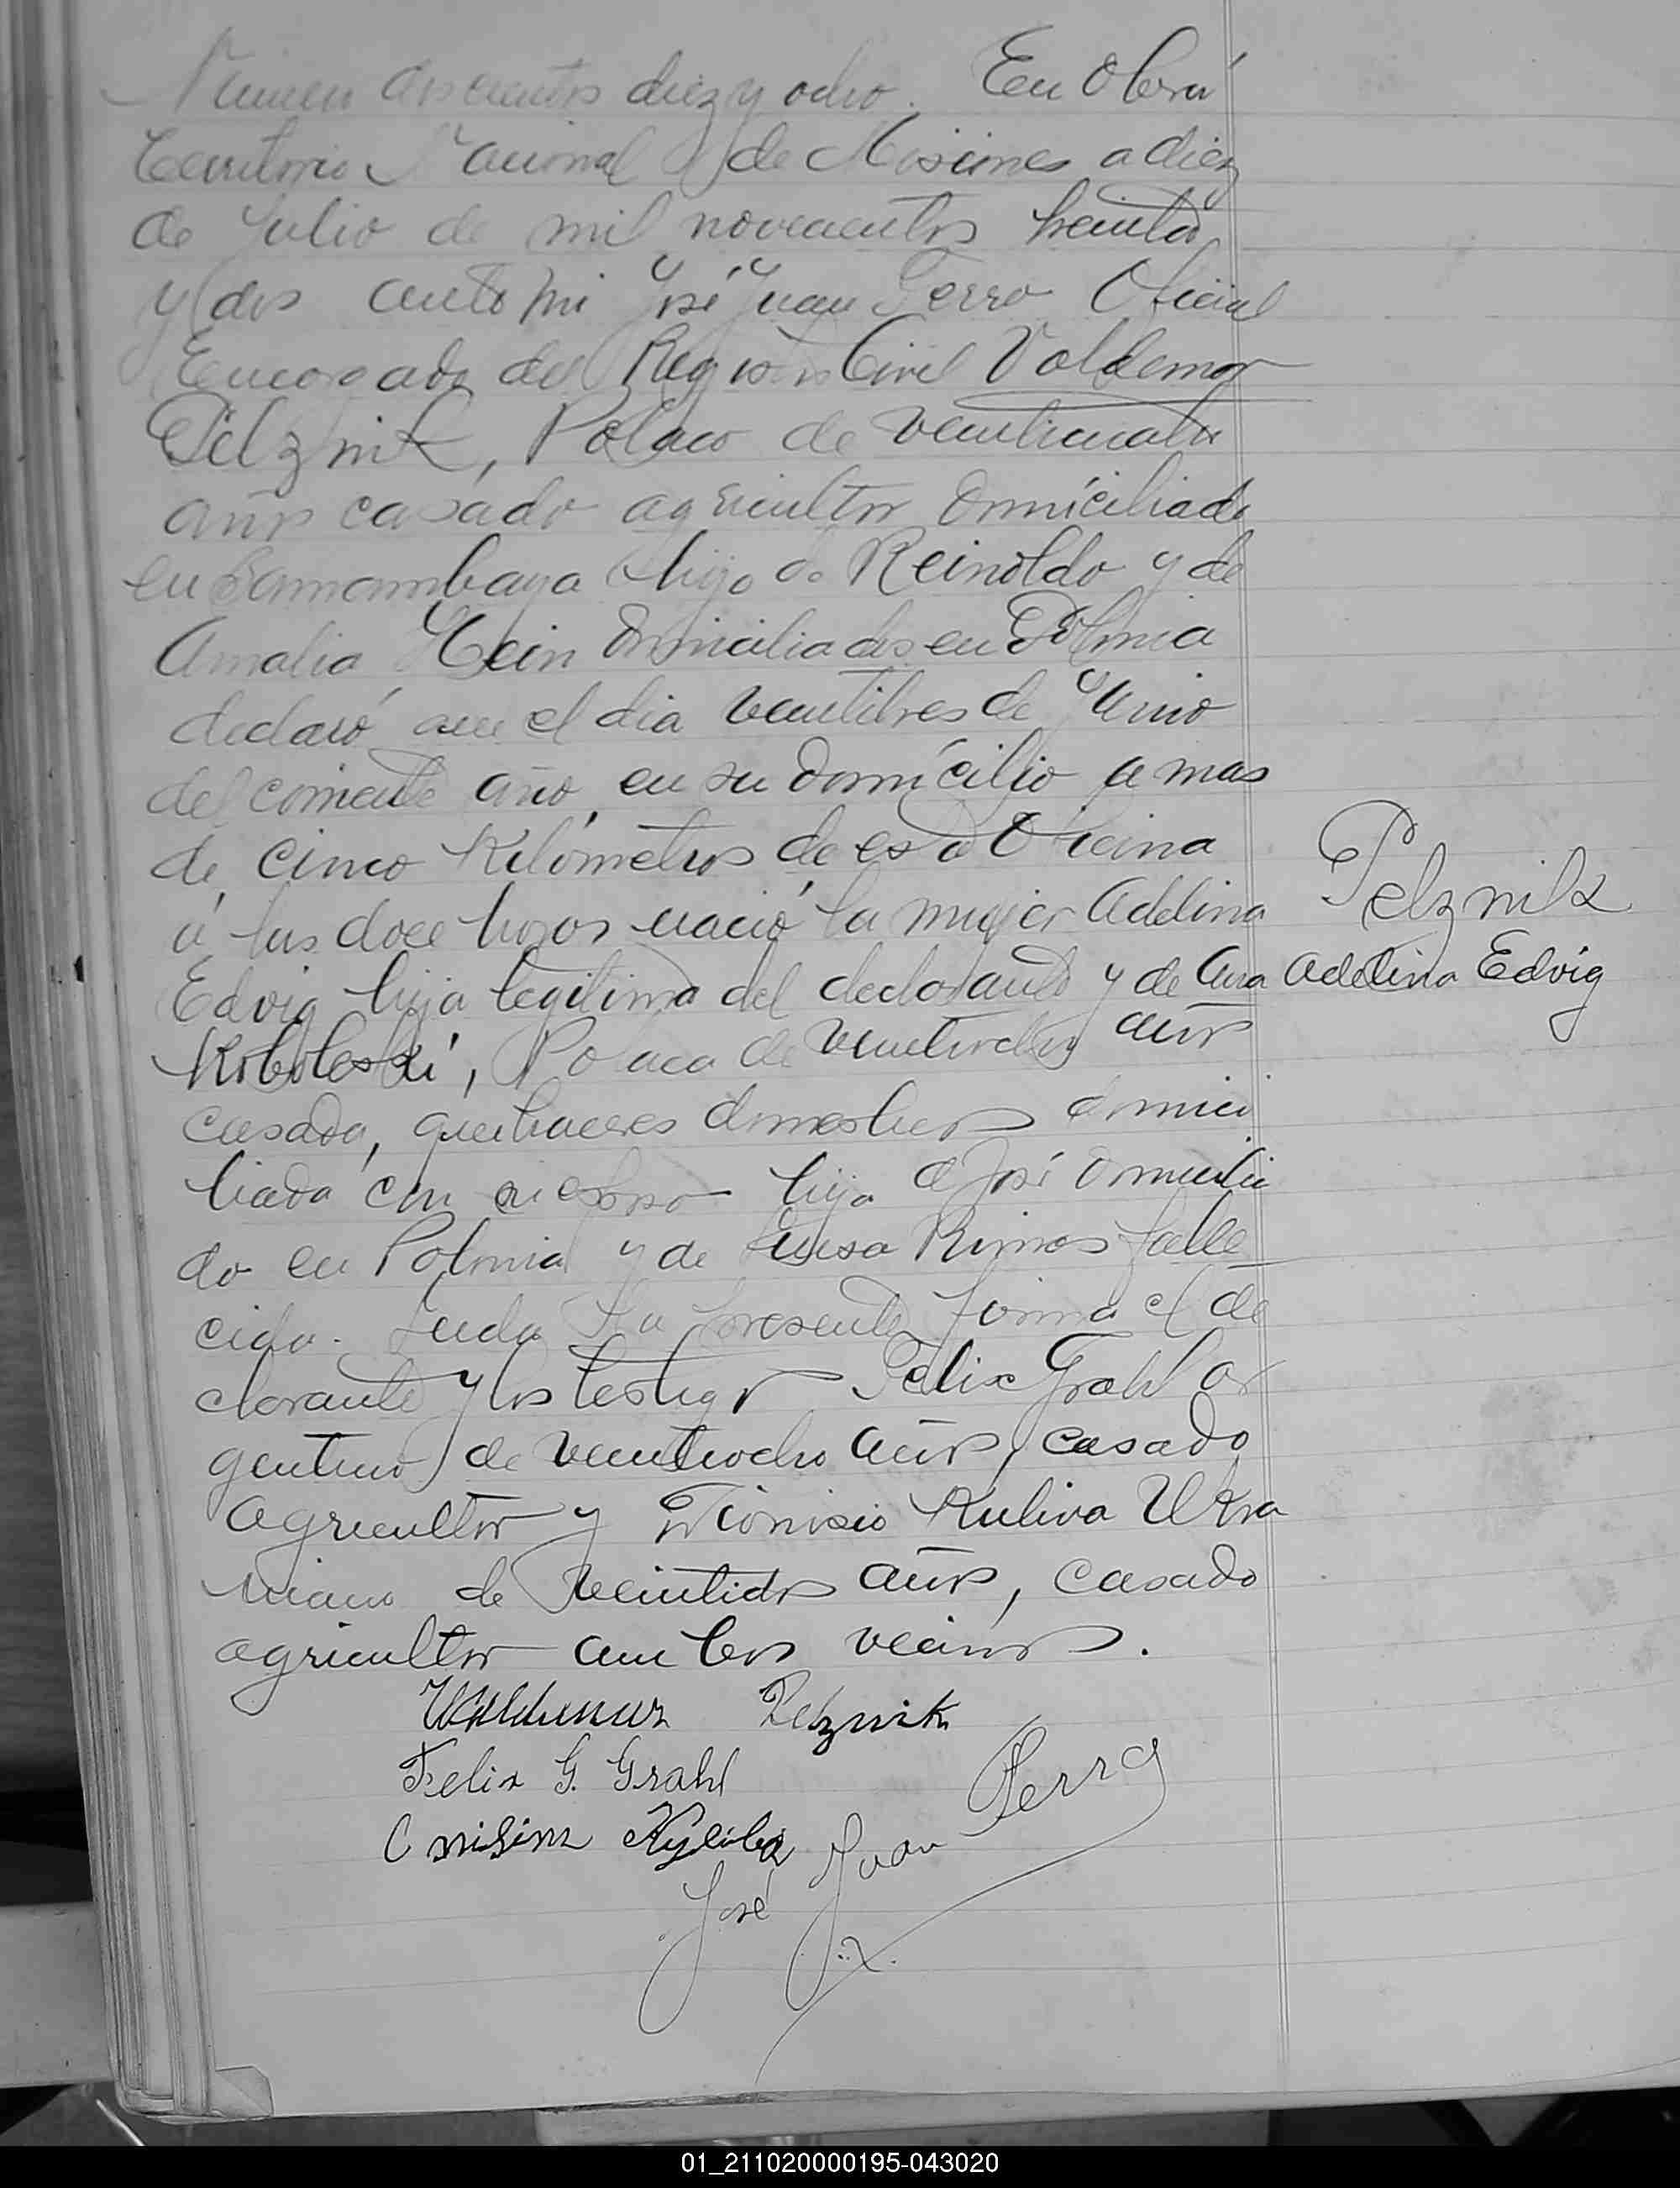 Número doscientos diez y ocho. En Oberá
Territorio Nacional de Misiones a diez
de Julio de mil novecientos treinta
y dos ante mi José Juan Ferro Oficial
Encargado del Registro Civil Valdemar
Pelznik, Polaco de venticuatro
años casado agricultor domiciliado
en Samambaya hijo de Reinoldo y de
Amalia Hein domiciliados en Polonia
declaró que el dia ventitres de Junio
del corriente año, en su domícilio a mas
de cinco Kilómetros de esta Oficina
á las doce horas nació la mujer Adelina
Edvig hija legitima del declarante y de Ana
Koboleski, Polaca de años
casada, quehaceres domesticos domici
liada con su esposo hija de José domicilia
do en Polonia y de Luisa falle
cida. Leida la presente firma el de
clarante y los testigos Felix Grahl ar
gentino de ventiocho años, casado
agricultor y Dionisio Kuliva Ukra
niano de veintidos años, casado
agricultor ambos vecinos.
Pelznik
Adelina Edvig
Waldemar Pelznik
Felix G. Grahl
José Juan Ferro
01_211020000195-043020